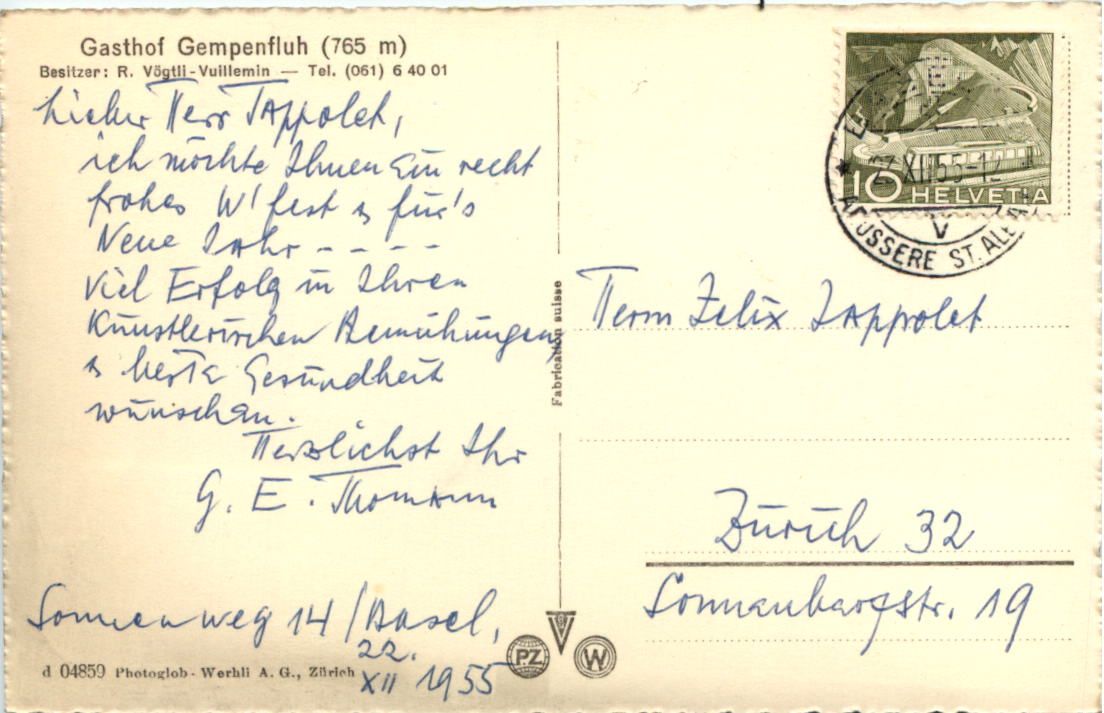 Gasthof Gempenfluh (765 m)
Besitzer: R. Vögtli-Vuillemin — Tel. (061) 6 40 01
Lieber Herr Tappolet,
ich möchte Ihnen ein recht
frohes W'fest & für's
Neue Jahr - - - -
viel Erfolg in Ihren
künstlerischen Bemühungen,
& beste Gesundheit
wünschen.
Herzlichst Ihr
G. E. Thomann
Sonnenweg 14 / Basel,
22.
XII 1955
d 04859 Photoglob - Wehrli A. G., Zürich
Fabrication suisse
PZ
W
10 HELVETIA
XII 55-12
V
ÄUSSERE ST. ALBAN
Herrn Felix Tappolet
Zürich 32
Sonnenbergstr. 19